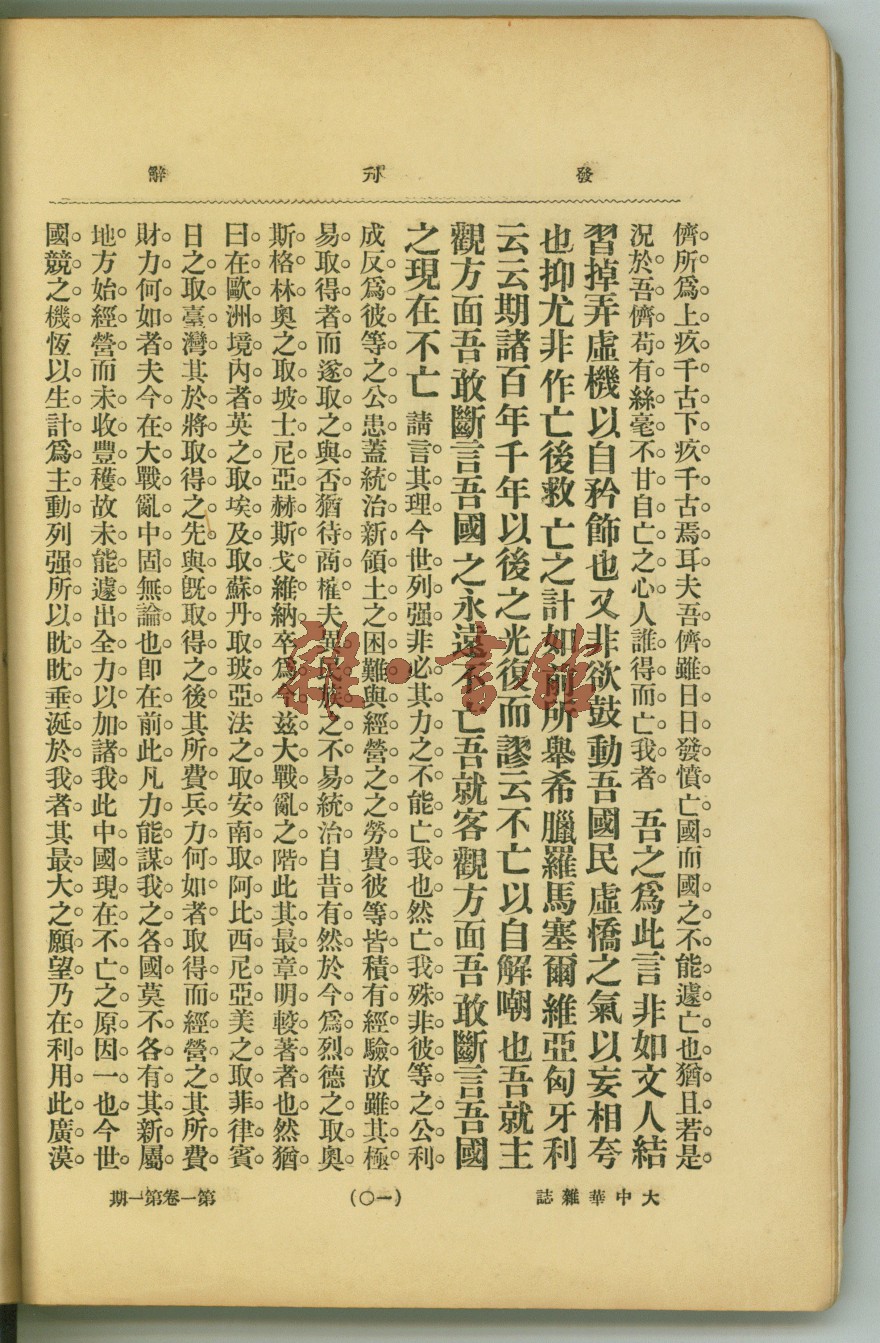 發刊辭
儕所爲上疚千古下疚千古焉耳夫吾儕雖日日發憤亡國而國之不能遽亡也猶且若是
況於吾儕苟有絲毫不甘自亡之心人誰得而亡我者 吾之爲此言非如文人結
習掉弄虛機以自矜飾也又非欲鼓動吾國民虛憍之氣以妄相夸
也抑尤非作亡後救亡之計如前所舉希臘羅馬塞爾維亞匈牙利
云云期諸百年千年以後之光復而謬云不亡以自解嘲也吾就主
觀方面吾敢斷言吾國之永遠不亡吾就客觀方面吾敢斷言吾國
之現在不亡 請言其理今世列强非必其力之不能亡我也然亡我殊非彼等之公利
成反爲彼等之公患蓋統治新領土之困難與經營之之勞費彼等皆積有經驗故雖其極
易取得者而遂取之與否猶待商榷夫異民族之不易統治自昔有然於今爲烈德之取奧
斯格林奧之取坡士尼亞赫斯戈維納卒爲今茲大戰亂之階此其最章明較著者也然猶
曰在歐洲境內者英之取埃及取蘇丹取玻亞法之取安南取阿比西尼亞美之取菲律賓
日之取臺灣其於將取得之先與旣取得之後其所費兵力何如者取得而經營之其所費
財力何如者夫今在大戰亂中固無論也卽在前此凡力能謀我之各國莫不各有其新屬
地方始經營而未收豐穫故未能遽出全力以加諸我此中國現在不亡之原因一也今世
國競之機恆以生計爲主動列强所以眈眈垂涎於我者其最大之願望乃在利用此廣漠
大中華雜誌
(一〇)
第一卷第一期
雜·書館